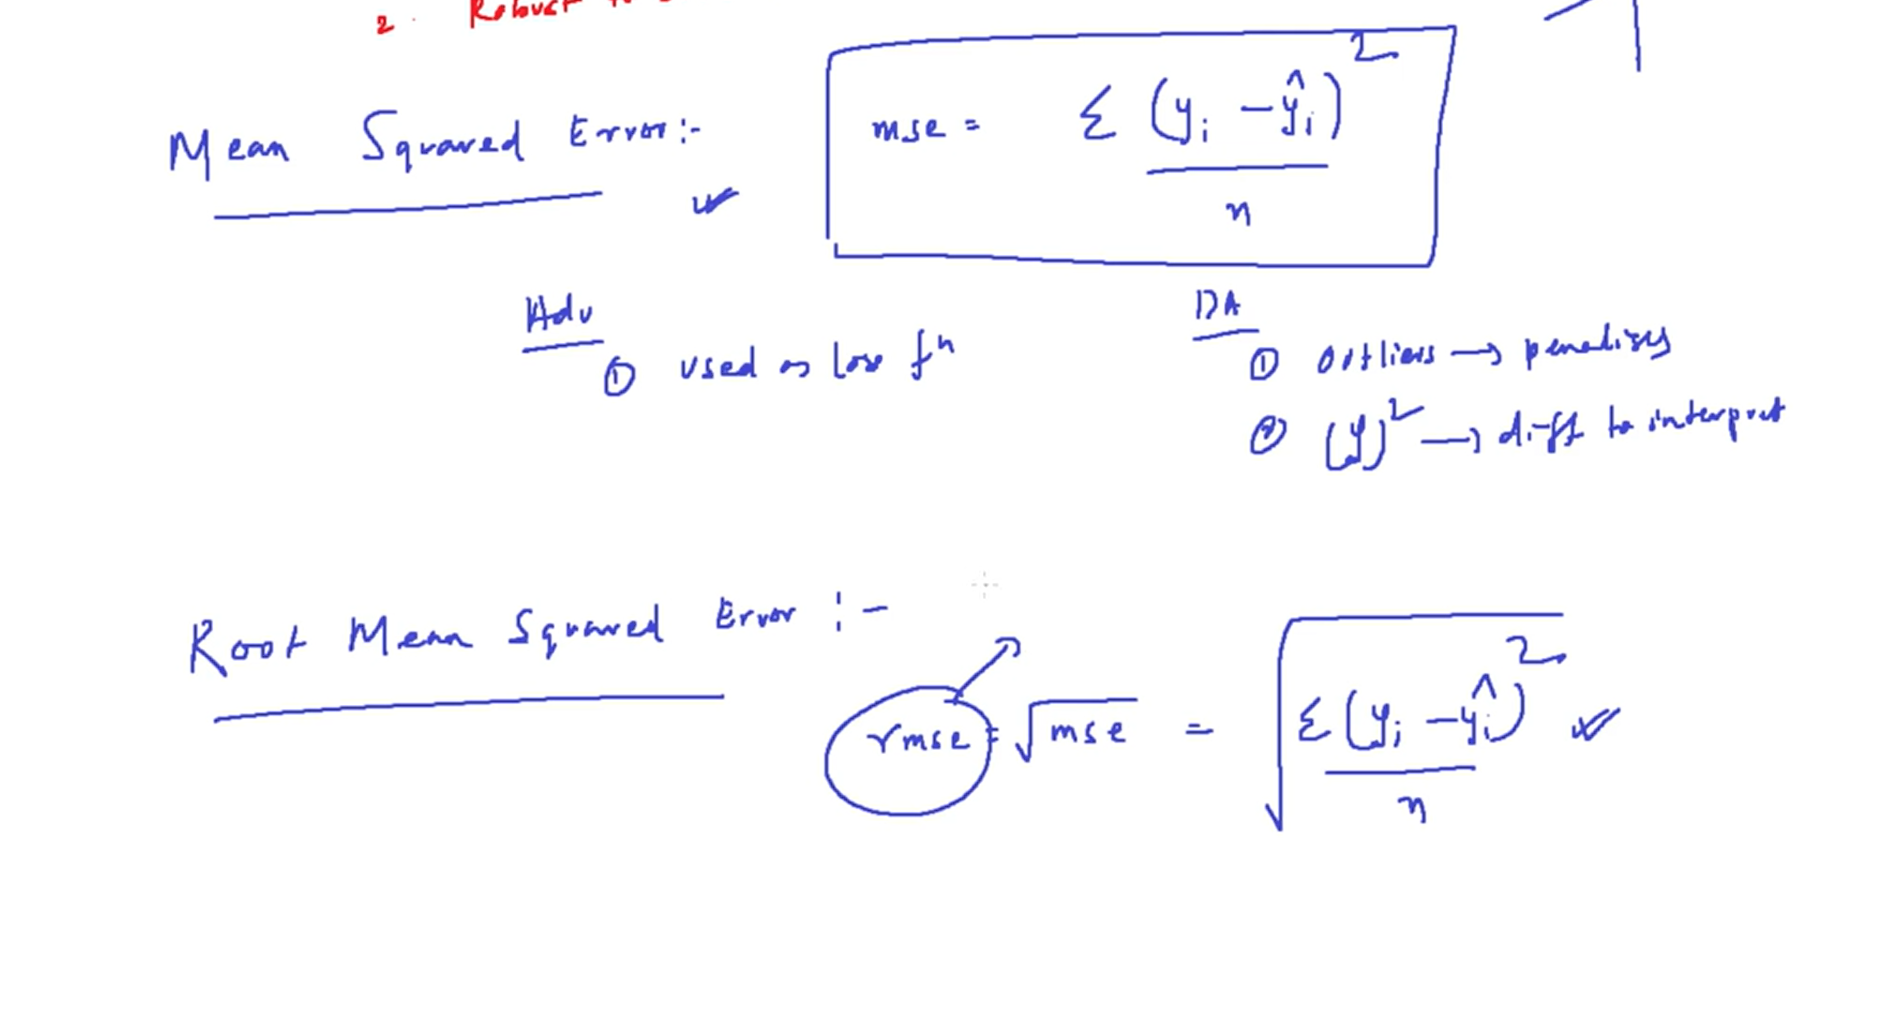 2. Robust to
Mean Squared Error:-
mse = Σ (yᵢ - ŷᵢ)²
n
Adv
① used as loss fⁿ
DA
① outliers → penalizes
② (y)² → diff to interpret
Root Mean Squared Error :-
rmse = √mse = √Σ(yᵢ - ŷᵢ)²
n